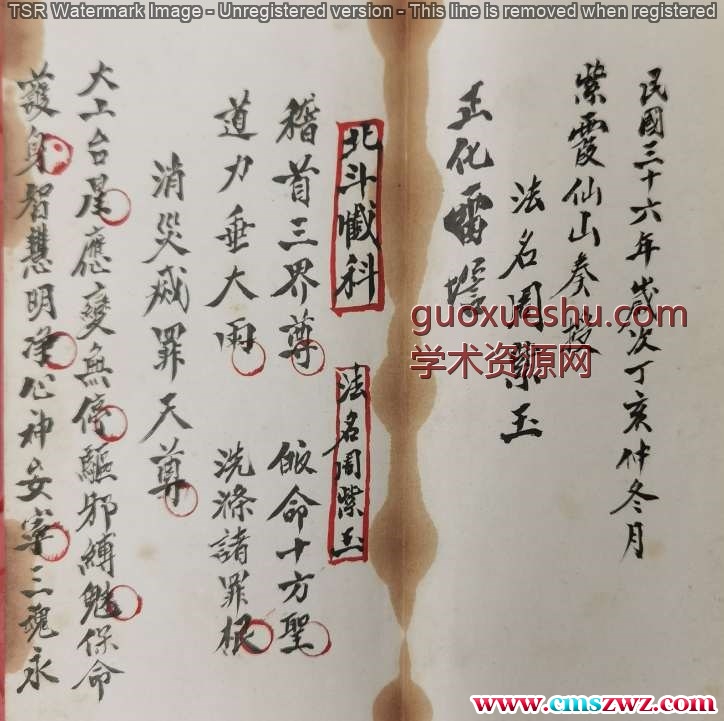 TSR Watermark Image - Unregistered version - This line is removed when registered
民國三十六年歲次丁亥仲冬月
紫霞仙山奏授
法名周紫玉
正化雷壇
北斗懺科 法名周紫玉
稽首三界尊 皈命十方聖
道力垂大雨 洗滌諸罪根
消災滅罪天尊
大上台星應變無停驅邪縛魅保命
護身智慧明淨心神安寧三魂永
guoxueshu.com
学术资源网
www.cmszwz.com